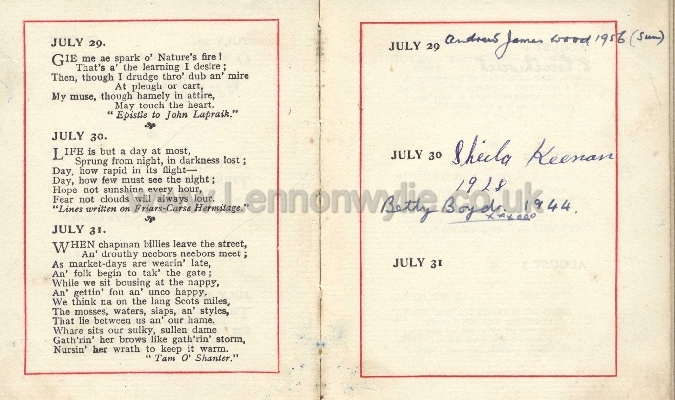 JULY 29.
GIE me ae spark o' Nature's fire!
That's a' the learning I desire;
Then, though I drudge thro' dub an' mire
At pleugh or cart,
My muse, though hamely in attire,
May touch the heart.
"Epistle to John Lapraik."
JULY 30.
LIFE is but a day at most,
Sprung from night, in darkness lost;
Day, how rapid in its flight—
Day, how few must see the night;
Hope not sunshine every hour,
Fear not clouds will always lour.
"Lines written on Friars-Carse Hermitage."
JULY 31.
WHEN chapman billies leave the street,
An' drouthy neebors neebors meet;
As market-days are wearin' late,
An' folk begin to tak' the gate;
While we sit bousing at the nappy,
An' gettin' fou an' unco happy,
We think na on the lang Scots miles,
The mosses, waters, slaps, an' styles,
That lie between us an' our hame,
Whare sits our sulky, sullen dame
Gath'rin' her brows like gath'rin' storm,
Nursin' her wrath to keep it warm.
"Tam O' Shanter."
JULY 29 Andrew James Wood 1956 (Sun)
JULY 30 Sheila Keenan
1928
Betty Boyd 1944.
JULY 31
www.Lennonwylie.co.uk